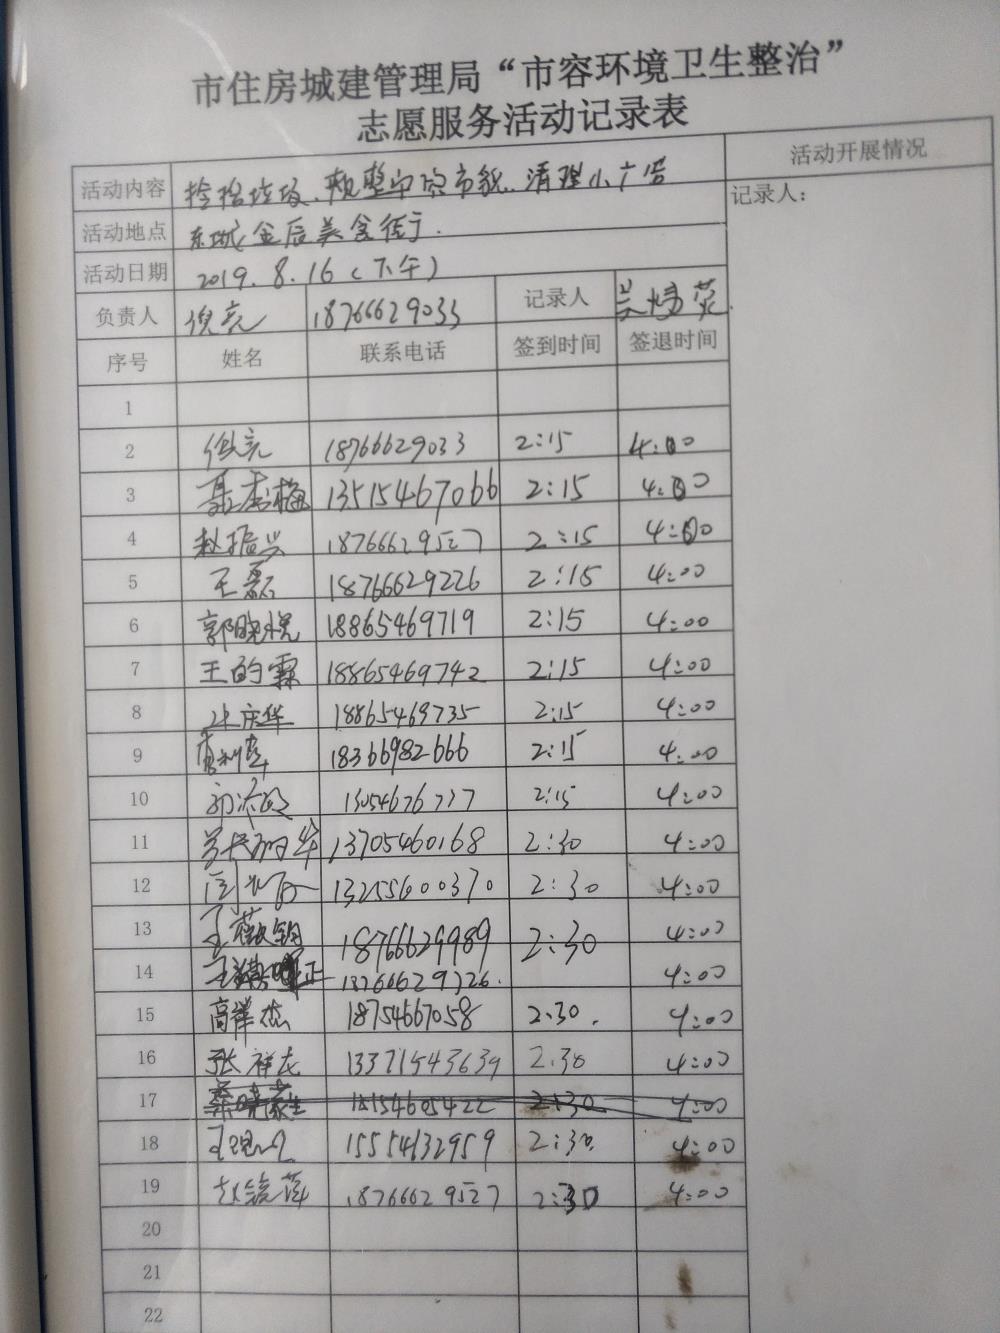 市住房城建管理局“市容环境卫生整治”
志愿服务活动记录表
活动内容 捡拾垃圾、规整市容市貌、清理小广告 活动开展情况
活动地点 东城金辰美食街 记录人：
活动日期 2019.8.16(下午)
负责人 倪亮 18766629033 记录人
序号 姓名 联系电话 签到时间 签退时间
1
2 倪亮 18766629033 2:15 4:00
3 聂秀梅 13515467066 2:15 4:00
4 赵振兴 18766629527 2:15 4:00
5 王磊 18766629226 2:15 4:00
6 郭晓悦 18865469719 2:15 4:00
7 王的霖 18865469742 2:15 4:00
8 张庆华 18865469735 2:15 4:00
9 18366982666 2:15 4:00
10 13054676737 2:15 4:00
11 13705460168 2:30 4:00
12 13255600370 2:30 4:00
13 18766629989 2:30 4:00
14 18766629326. 4:00
15 高祥杰 18754667058 2:30. 4:00
16 张祥龙 13371543639 2:30 4:00
17 18154605422 2:30 4:00
18 15554132959 2:30 4:00
19 18766629527 2:30 4:00
20
21
22